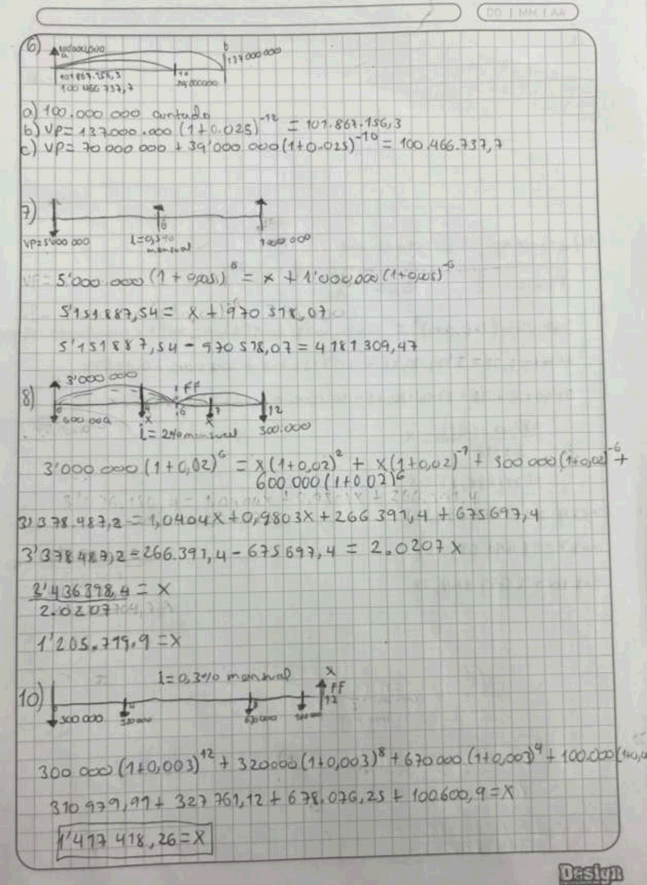 DD | MM | AA
6)
137 000 000
101.867.156,3
100 466 737,7
a) 100.000 000 contado
b) VP = 137000.000 (1+0.025)^-12 = 101.867.156,3
c) VP = 70 000 000 + 39'000 000 (1+0.025)^-10 = 100.466.737,7
7)
6
VP=5'000 000 i=0,5% mensual
5'000.000 (1 + 0,005)^6 = x + 1'000 000 (1+0,005)^-6
5'151 887,54 = x + 970 578,07
5'151 887,54 - 970 578,07 = 4 181 309,47
3'000 000 FF
8)
600 000 x 6 x 12
i = 2% mensual 300.000
3'000 000 (1+0,02)^6 = x(1+0,02)^2 + x(1+0,02)^-1 + 300 000 (1+0,02)^-6 +
600 000 (1+0.02)^6
3'378.487,2 = 1,0404x + 0,9803x + 266 391,4 + 675 697,4
3'378 487,2 = 266.391,4 - 675 697,4 = 2.0207 x
2'436398,4 = x
2.0207
1'205.719.9 = x
i=0,3% mensual x
10) FF
12
300 000
300 000 (1+0,003)^12 + 320000 (1+0,003)^8 + 670 000 (1+0,003)^4 + 100.000
310 979,99 + 327 761,12 + 678.076,25 + 100600,9 = x
1'417 418,26 = x
Design